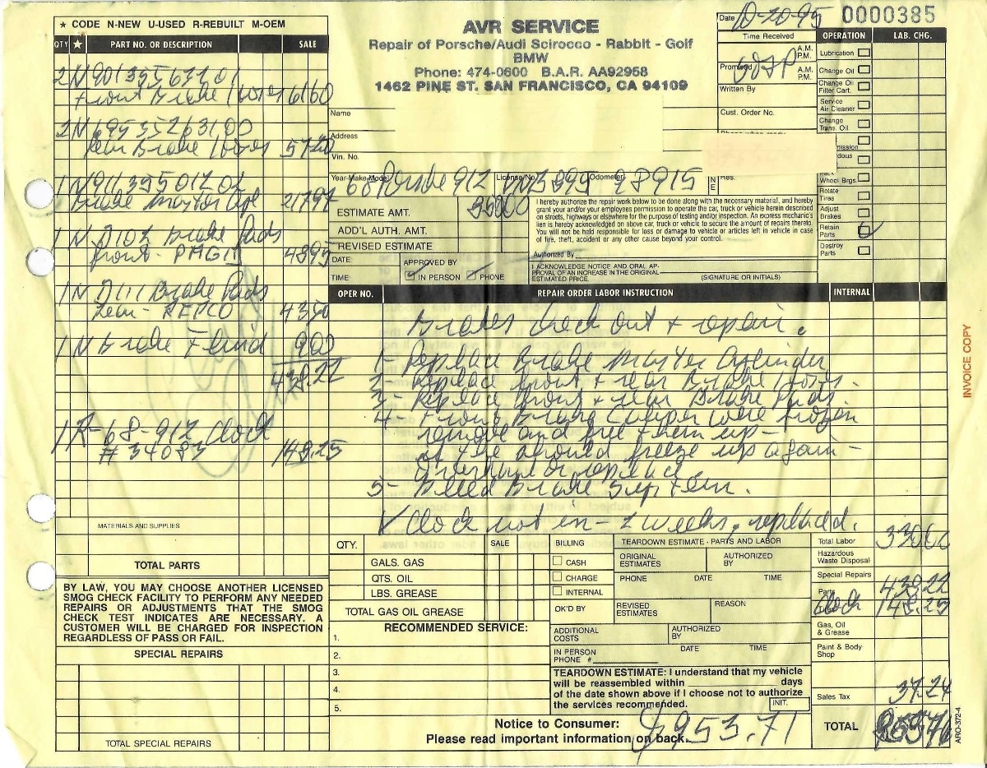 ★ CODE N-NEW U-USED R-REBUILT M-OEM
QTY ★ PART NO. OR DESCRIPTION SALE
Front Brake 6160
2N 69535263100
rear Brake 5720
1N 91135501201
Brake Master Cyl 21797
1N D108 Brake Pads
front - PAGID 4895
1N D111 Brake Pads
rear - REPCO 4350
1N Brake Fluid 900
438.22
1R-68-912 Clock
# 34083 148.25
MATERIALS AND SUPPLIES
TOTAL PARTS
BY LAW, YOU MAY CHOOSE ANOTHER LICENSED
SMOG CHECK FACILITY TO PERFORM ANY NEEDED
REPAIRS OR ADJUSTMENTS THAT THE SMOG
CHECK TEST INDICATES ARE NECESSARY. A
CUSTOMER WILL BE CHARGED FOR INSPECTION
REGARDLESS OF PASS OR FAIL.
SPECIAL REPAIRS
TOTAL SPECIAL REPAIRS
AVR SERVICE
Repair of Porsche/Audi Scirocco - Rabbit - Golf
BMW
Phone: 474-0600 B.A.R. AA92958
1462 PINE ST. SAN FRANCISCO, CA 94109
Name
Address
Vin. No.
Date 0-20-95 0000385
Time Received A.M. P.M.
Promised A.M. P.M.
Written By
Cust. Order No.
OPERATION LAB. CHG.
Lubrication
Change Oil
Change Oil Filter Cart.
Service Air Cleaner
Change Trans. Oil
Wheel Brgs.
Rotate Tires
Adjust Brakes
Retain Parts
Destroy Parts
Year-Make-Model 68 Porsche 912 License No. Odometer 98915
ESTIMATE AMT. 35000
ADD'L AUTH. AMT.
REVISED ESTIMATE
DATE: APPROVED BY
TIME: IN PERSON PHONE
I hereby authorize the repair work below to be done along with the necessary material, and hereby
grant your and/or your employees permission to operate the car, truck or vehicle herein described
on streets, highways or elsewhere for the purpose of testing and/or inspection. An express mechanic's
lien is hereby acknowledged on above car, truck or vehicle to secure the amount of repairs thereto.
You will not be held responsible for loss or damage to vehicle or articles left in vehicle in case
of fire, theft, accident or any other cause beyond your control.
Authorized By
I ACKNOWLEDGE NOTICE AND ORAL AP-
PROVAL OF AN INCREASE IN THE ORIGINAL
ESTIMATED PRICE. (SIGNATURE OR INITIALS)
OPER NO. REPAIR ORDER LABOR INSTRUCTION INTERNAL
Brakes check out + repair.
1- Replace Brake Master Cylinder
2- Replace front + rear Brake Hoses.
3- Replace front + rear Brake Pads.
4- Front Brake Caliper were frozen
remove and free them up-
if the should freeze up again-
overhaul or replace.
5- Bleed Brake System.
√ Clock not in - 2 weeks, replaced.
QTY. SALE
GALS. GAS
QTS. OIL
LBS. GREASE
TOTAL GAS OIL GREASE
RECOMMENDED SERVICE:
1.
2.
3.
4.
5.
BILLING
CASH
CHARGE
INTERNAL
OK'D BY
TEARDOWN ESTIMATE - PARTS AND LABOR
ORIGINAL ESTIMATES AUTHORIZED BY
PHONE DATE TIME
REVISED ESTIMATES REASON
ADDITIONAL COSTS AUTHORIZED BY
IN PERSON PHONE # DATE TIME
TEARDOWN ESTIMATE: I understand that my vehicle
will be reassembled within days
of the date shown above if I choose not to authorize
the services recommended. INIT.
Notice to Consumer:
Please read important information on back.
$953.71
Total Labor 330.00
Hazardous Waste Disposal
Special Repairs
Parts 438.22
Clock 148.25
Gas, Oil & Grease
Paint & Body Shop
Sales Tax 37.24
TOTAL
INVOICE COPY
ARO-372-4